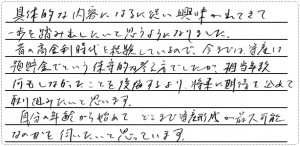 具体的な内容になるに従い興味がわてきて
一歩を踏み出したいと思うようになりました。
昔の高金利時代を経験しているので、今までは資産は
預貯金でという保守的な考え方でしたが、
何もしなかったことを後悔するより、将来に期待を込めて
取り組みたいと思います。
自分の年齢から始めて どこまで資産形成が最大可能
なのかを伺いたいと思っています。